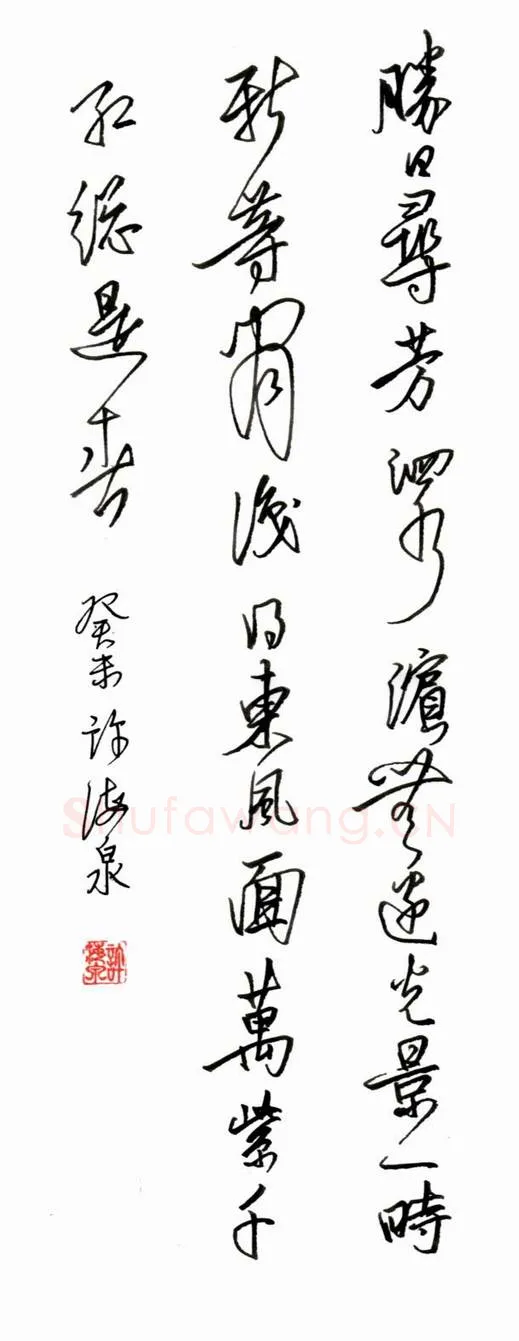 勝日尋芳泗水濱無邊光景一時
新等閒識得東風面萬紫千
紅總是春 癸未 許海泉
Shufawang.CN